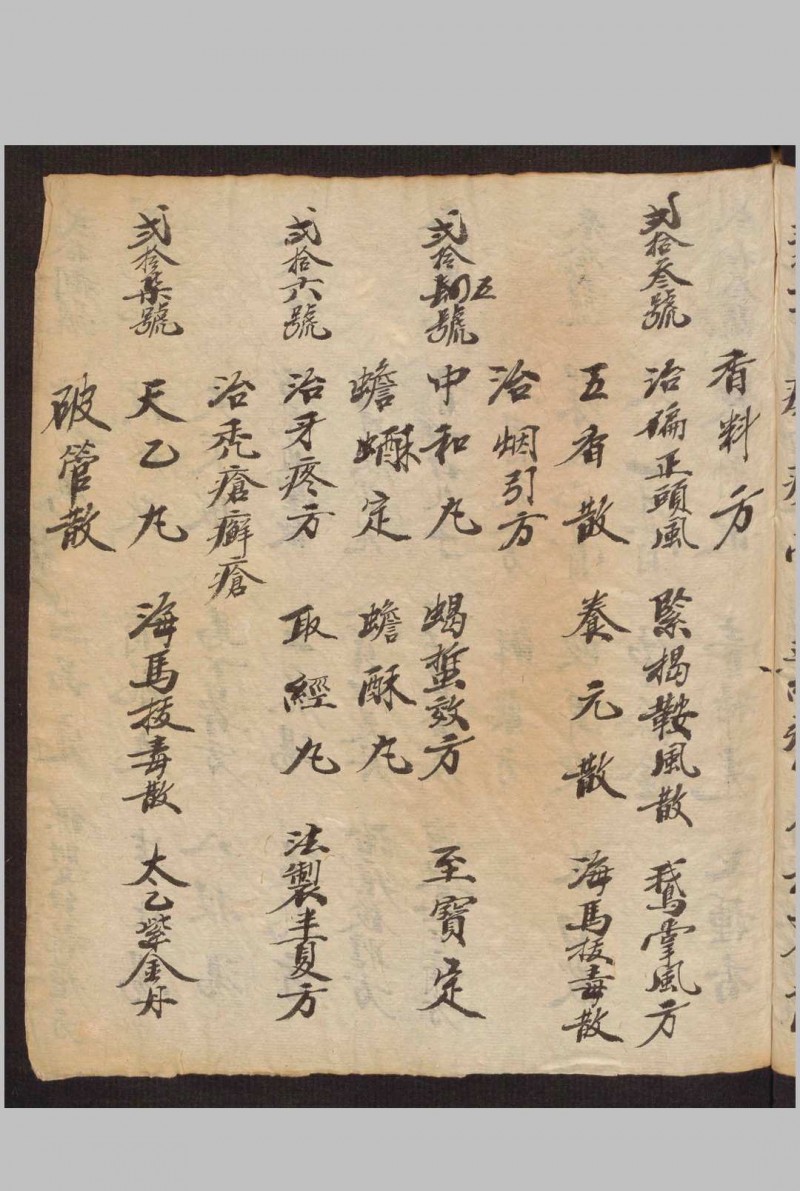 香料方
弍拾叄號 治偏正頭風 緊楬鞍風散 鵝掌風方
五香散 養元散 海馬拔毒散
治烟引方
弍拾五號 中和丸 蝎蜇效方 至寶定
蟾酥定 蟾酥丸
弍拾六號 治牙疼方 取經丸 法製半夏方
治禿瘡癬瘡
弍拾柒號 天乙丸 海馬拔毒散 太乙紫金丹
破管散